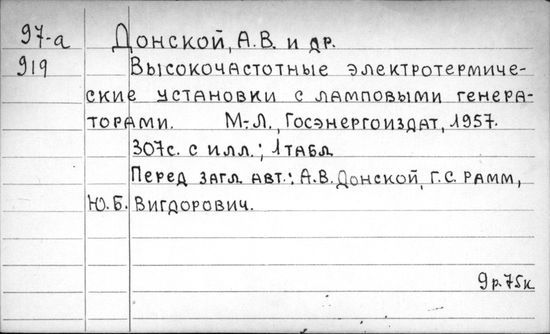 97-а Донской, А.В. и др.
919 Высокочастотные электротермиче-
ские установки с ламповыми генера-
торами. М.-Л., Госэнергоиздат, 1957.
307с. с илл.; 1 табл
Перед загл. авт.: А.В. Донской, Г.С. Рамм,
Ю.Б. Вигдорович.
9р.75к